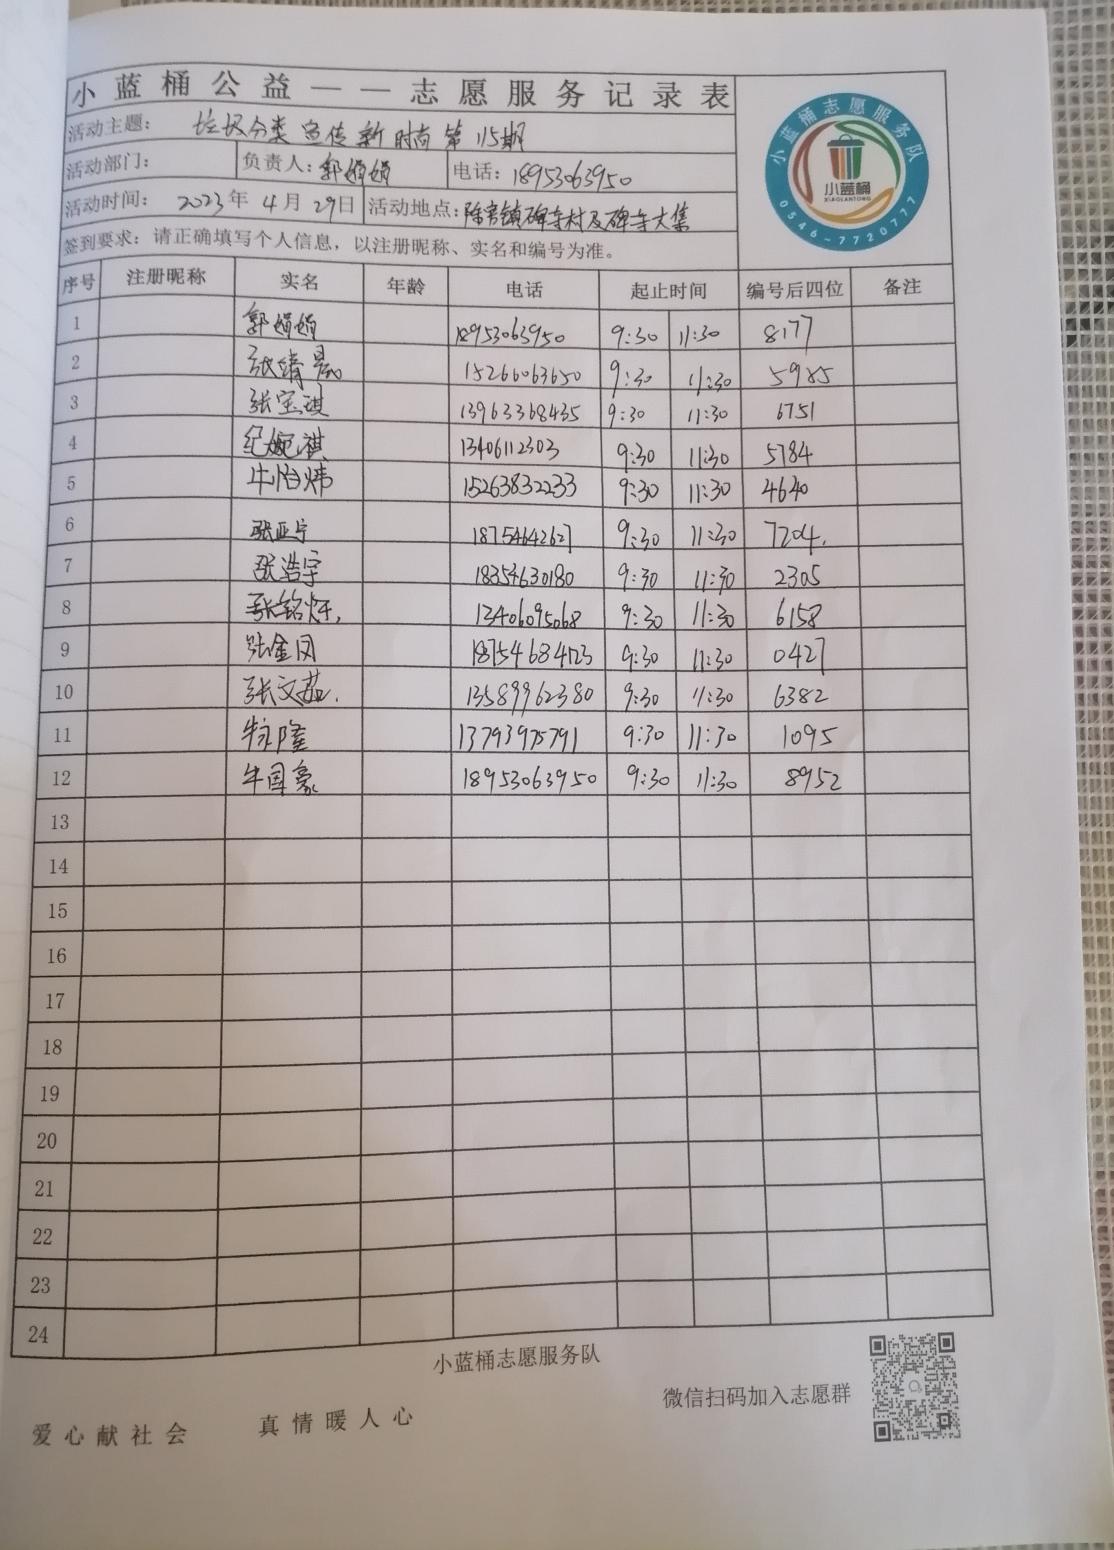 小蓝桶公益——志愿服务记录表
活动主题: 垃圾分类 宣传新时尚 第115期
活动部门: 负责人: 郭娟娟 电话: 18953063950
活动时间: 2023年 4月 29日 活动地点: 陈官镇碑寺村及碑寺大集
签到要求: 请正确填写个人信息，以注册昵称、实名和编号为准。
小蓝桶志愿服务队
小蓝桶
XIAOLANTONG
0546-7720777
序号 注册昵称 实名 年龄 电话 起止时间 编号后四位 备注
1 郭娟娟 18953063950 9:30 11:30 8177
2 张绪晨 15266063650 9:30 11:30 5985
3 张宝琪 13963368435 9:30 11:30 6751
4 纪婉祺 13406112303 9:30 11:30 5784
5 牛怡炜 15263832233 9:30 11:30 4640
6 张亚宁 18754642627 9:30 11:30 7204.
7 张浩宇 18354630180 9:30 11:30 2305
8 张铭烆. 13406095068 9:30 11:30 6158
9 张金凤 18754684123 9:30 11:30 0427
10 张文茹. 13589962380 9:30 11:30 6382
11 牛永隆 13793975791 9:30 11:30 1095
12 牛国豪 18953063950 9:30 11:30 8952
13
14
15
16
17
18
19
20
21
22
23
24
小蓝桶志愿服务队
微信扫码加入志愿群
爱心献社会 真情暖人心